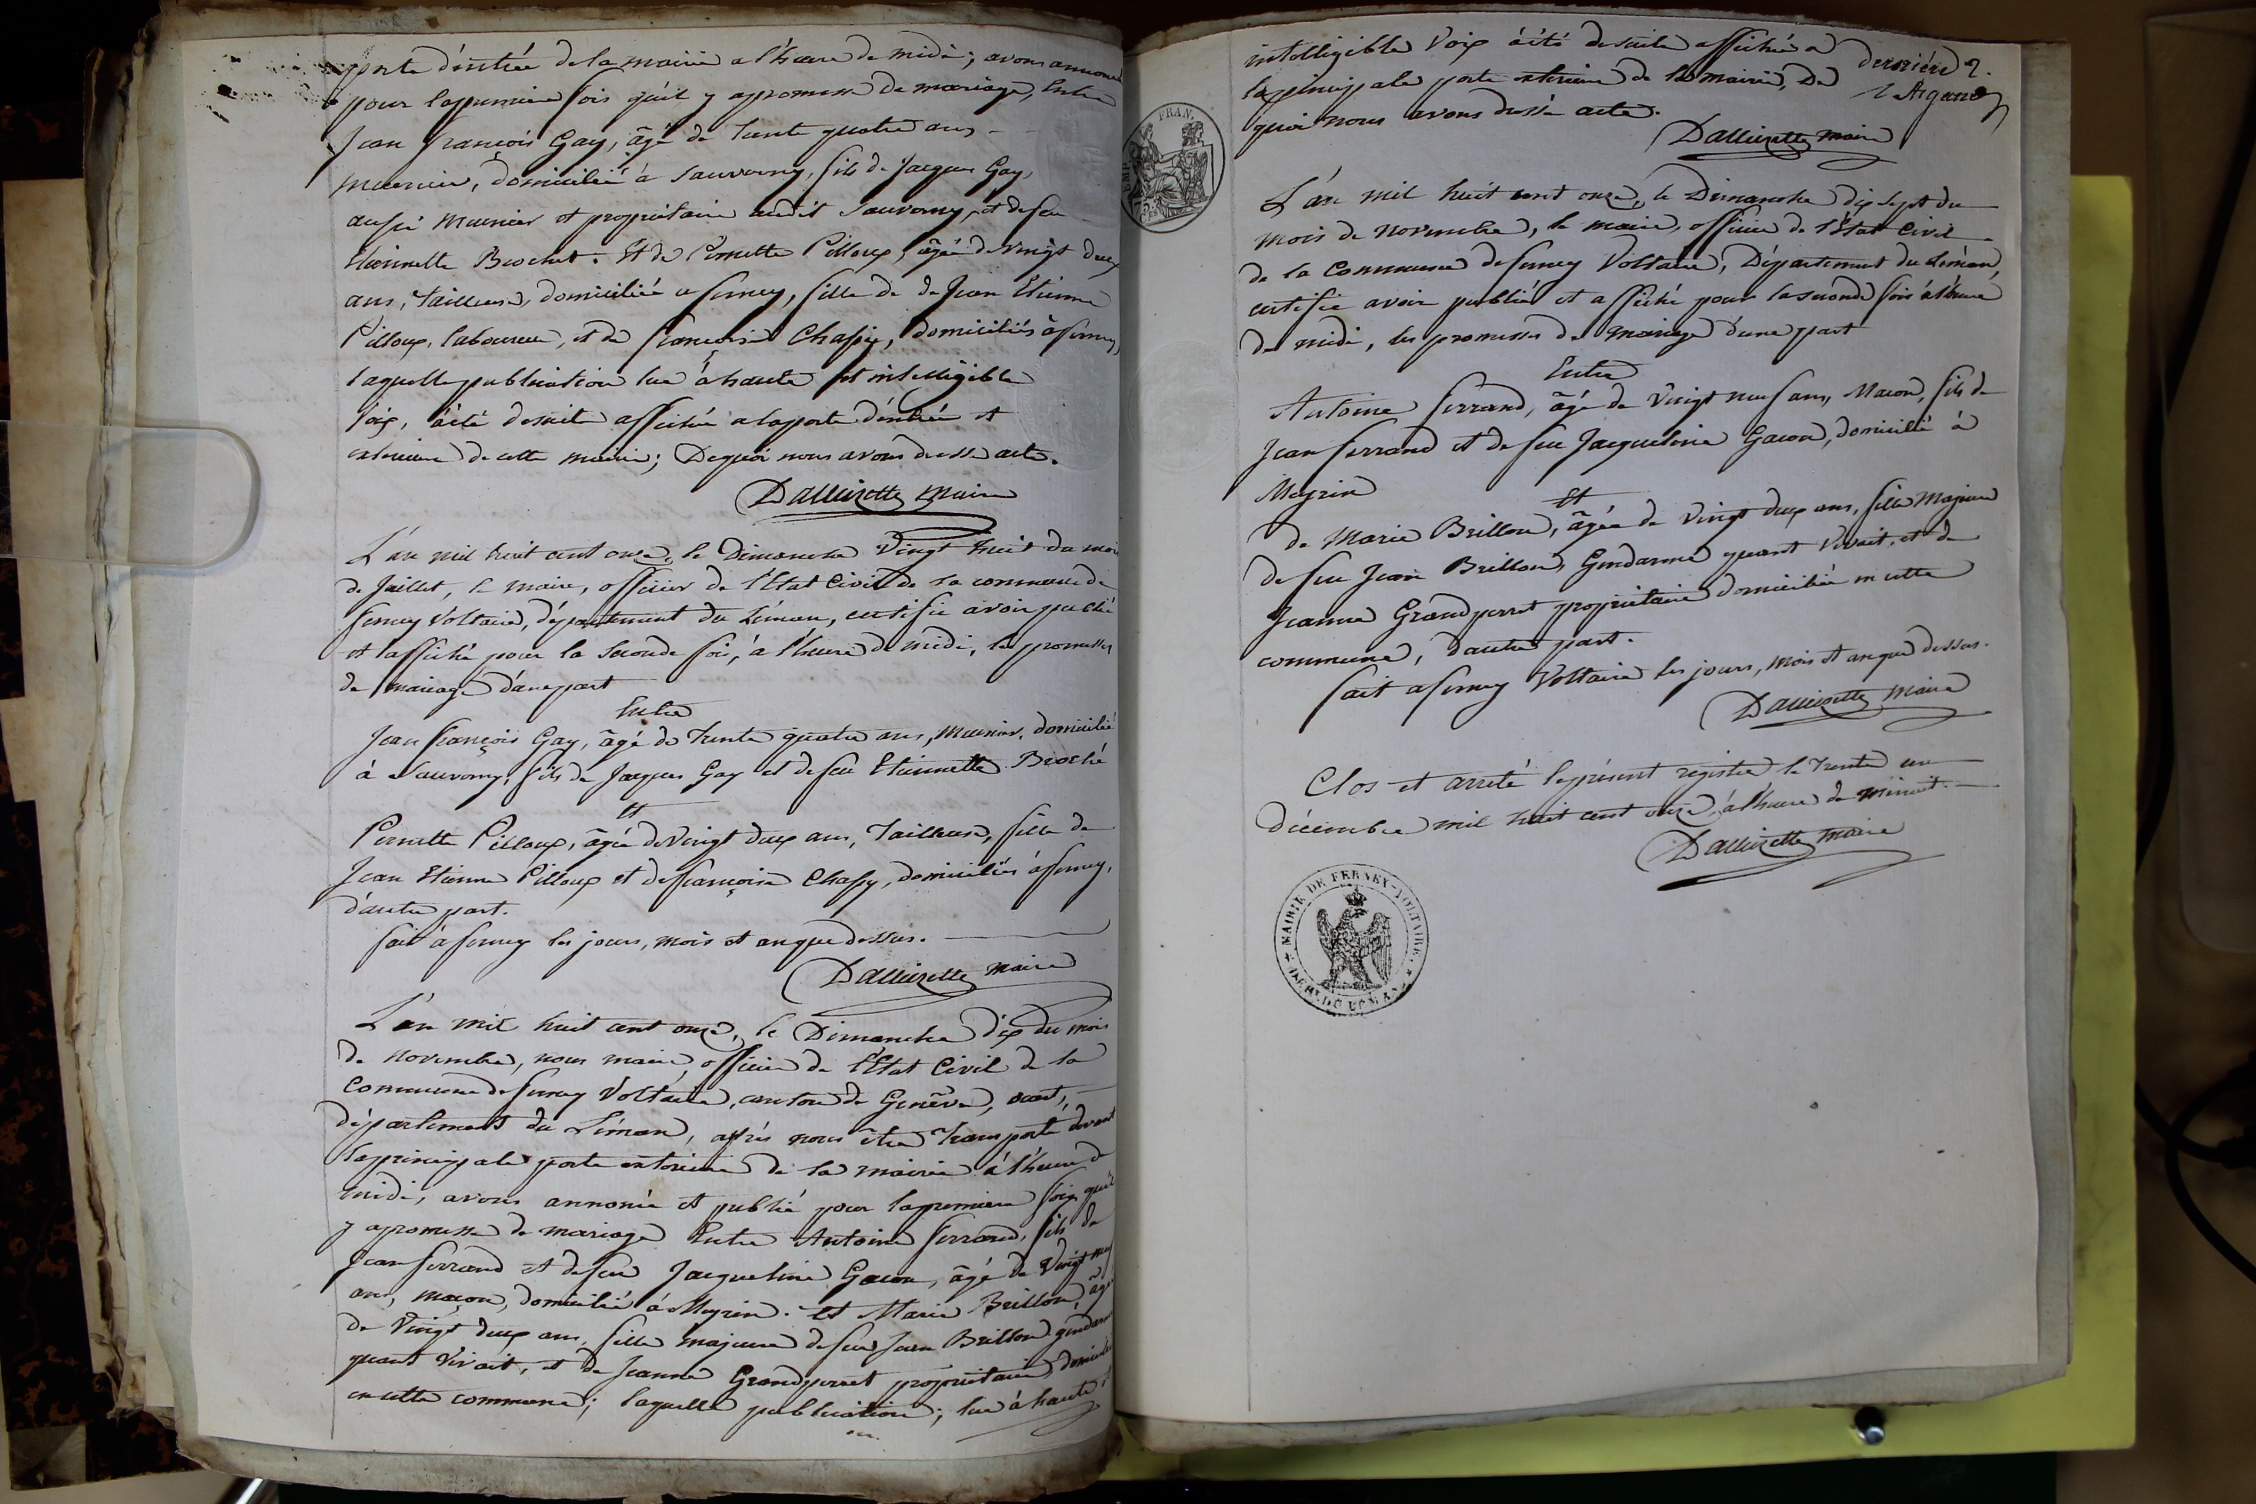 porte d'entrée de la mairie a l'heure de midi; avons annoncé
pour la premiere fois qu'il y a promesse de mariage, Entre
Jean françois Gay, âgé de trente quatre ans
meunier, domicilié à Sauverny, fils de Jacques Gay,
aussi meunier et propriétaire audit Sauverny, et de feu
Etiennette Brochet. Et de Pernette Pilloux, âgée de vingt deux
ans, tailleuse, domiciliée a ferney, fille de de Jean Etienne
Pilloux, laboureur, et de françoise Chassy, domiciliés à ferney,
laquelle publication lue à haute et intelligible
voix, à été desuite affichée a la porte d'entrée et
exterieure de cette mairie; De quoi nous avons dressé acte.
Dallizette maire
L'an mil huit cent onze, le Dimanche vingt huit du mois
de Juillet, le maire, officier de l'Etat Civil de la commune de
ferney Voltaire, département du Léman, certifie avoir publié
et affiché pour la seconde fois, à l'heure de midi, les promesses
de mariage d'une part
Entre
Jean françois Gay, âgé de trente quatre ans, meunier, domicilié
à Sauverny, fils de Jacques Gay et de feu Etiennette Broché
Et
Pernette Pilloux, âgée de vingt deux ans, tailleuse, fille de
Jean Etienne Pilloux et de françoise Chassy, domiciliés à ferney,
d'autre part.
fait à ferney les jours, mois et an que dessus.
Dallizette maire
L'an mil huit cent onze, le Dimanche dix du mois
de novembre, nous maire, officier de l'Etat Civil de la
Commune de ferney Voltaire, canton de Genève, ouest,
département du Léman, après nous être transporté devant
la principale porte exterieure de la mairie à l'heure de
midi, avons annoncé et publié pour la premiere fois qu'il
y a promesse de mariage Entre Antoine ferrand, fils de
Jean ferrand et de feu Jacqueline Gacon, âgé de vingt neuf
ans, maçon, domicilié à Meyrin. et Marie Brillon, âgée
de vingt deux ans, fille majeure de feu Jean Brillon gendarme
quant vivait, et de Jeanne Grandperret propriétaire domiciliée
en cette commune; laquelle publication; lue à haute et
intelligible voix à été desuite affichée a
la principale porte exterieure de la mairie, De
quoi nous avons dressé acte.
Dallizette maire
derrière 2.
FRAN.
L'an mil huit cent onze, le Dimanche dix sept du
mois de novembre, le maire, officier de l'Etat Civil
de la Commune de ferney Voltaire, Département du Léman,
certifie avoir publié et affiché pour la seconde fois à l'heure
de midi, les promesses de mariage d'une part
Entre
Antoine ferrand, âgé de vingt neuf ans, Macon, fils de
Jean ferrand et de feu Jacqueline Gacon, domicilié à
Meyrin
Et
de Marie Brillon, âgée de vingt deux ans, fille majeure
de feu Jean Brillon, Gendarme quant vivait, et de
Jeanne Grandperret propriétaire domiciliée en cette
commune, d'autre part.
fait a ferney Voltaire les jours, mois et an que dessus.
Dallizette maire
Clos et arreté le présent registre le trente un
décembre mil huit cent onze, à l'heure de minuit.
Dallizette maire
MAIRIE DE FERNEY-VOLTAIRE
DÉPT. DU LÉMAN